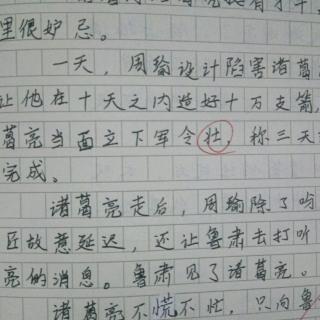 里很妒忌。
一天,周瑜设计陷害诸葛
让他在十天之内造好十万支箭,
葛亮当面立下军令壮,称三天
完成。
诸葛亮走后,周瑜除了吩
匠故意延迟,还让鲁肃去打听
亮的消息。鲁肃见了诸葛亮。
诸葛亮不慌不忙,只向鲁